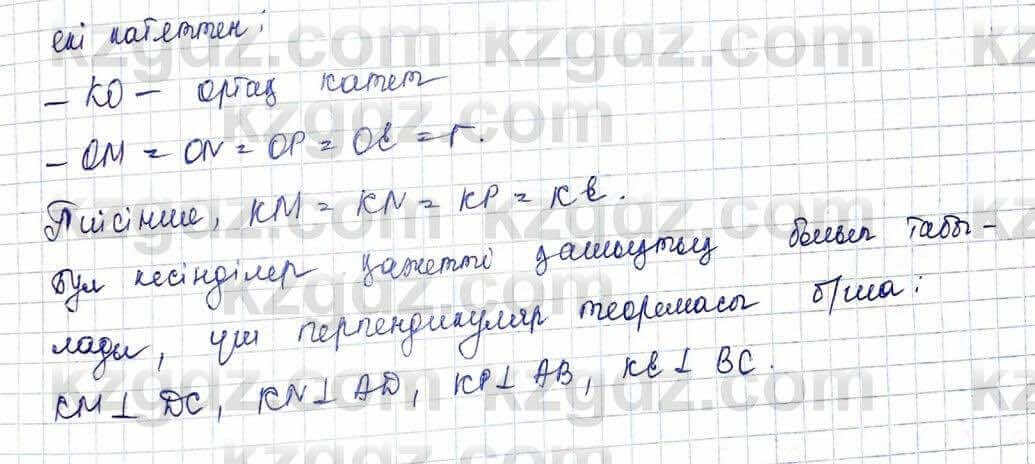 екі катеттен:
– КО – ортақ катет
– ОМ = ON = OP = Ol = r.
Тиісінше, KM = KN = KP = Kl.
Бұл кесінділер қажетті қашықтық болып табы-
лады, үш перпендикуляр теоремасы б/ша:
KM ⊥ DC, KN ⊥ AD, KP ⊥ AB, Kl ⊥ BC.
kzgdz.com